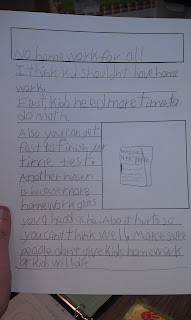 No home work for all
I think kids shouldn't have home
work.
First, kids need more time to
do math.
Also you can get
fast to finish your
time test.
Another reason
is becase more
home work gives
you a head ache. Also it hurts so
you cant think well. Make sure
people don't give kids home work
or kids will